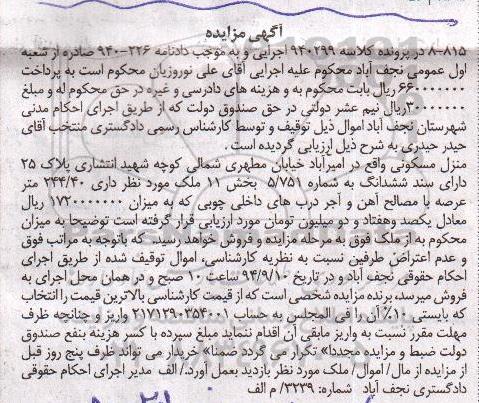 آگهی مزایده
۸-۸۱۵ در پرونده کلاسه ۹۴۰۲۹۹ اجرایی و به موجب دادنامه ۲۲۶-۹۴۰ صادره از شعبه
اول عمومی نجف آباد محکوم علیه اجرایی آقای علی نوروزیان محکوم است به پرداخت
۶۶۰۰۰۰۰۰۰ ریال بابت محکوم به و هزینه های دادرسی و غیره در حق محکوم له و مبلغ
۳۰۰۰۰۰۰۰ریال نیم عشر دولتی در حق صندوق دولت که از طریق اجرای احکام مدنی
شهرستان نجف آباد اموال ذیل توقیف و توسط کارشناس رسمی دادگستری منتخب آقای
حیدر حیدری به شرح ذیل ارزیابی گردیده است.
منزل مسکونی واقع در امیرآباد خیابان مطهری شمالی کوچه شهید انتشاری پلاک ۲۵
دارای سند ششدانگ به شماره ۵/۷۵۱ بخش ۱۱ ملک مورد نظر داری ۲۴۴/۴۰ متر
عرصه با مصالح آهن و آجر درب های داخلی چوبی که به میزان ۱۷۲۰۰۰۰۰۰۰ ریال
معادل یکصد وهفتاد و دو میلیون تومان مورد ارزیابی قرار گرفته است توضیحا به میزان
محکوم به از ملک فوق به مرحله مزایده و فروش خواهد رسید. که باتوجه به مراتب فوق
و عدم اعتراض طرفین نسبت به نظریه کارشناسی، اموال توقیف شده از طریق اجرای
احکام حقوقی نجف آباد و در تاریخ ۹۴/۹/۱۰ ساعت ۱۰ صبح و در همان محل اجرای به
فروش میرسد، برنده مزایده شخصی است که از قیمت کارشناسی بالاترین قیمت را انتخاب
که بایستی ۱۰٪ آن را فی المجلس به حساب ۲۱۷۱۳۹۰۳۵۴۰۰۱ واریز و چنانچه ظرف
مهلت مقرر نسبت به واریز مابقی آن اقدام ننماید مبلغ سپرده با کسر هزینه بنفع صندوق
دولت ضبط و مزایده مجددا» تکرار می گردد ضمنا» خریدار می تواند ظرف پنج روز قبل
از مزایده از مال/ اموال/ ملک مورد نظر بازدید بعمل آورد./ الف مدیر اجرای احکام حقوقی
دادگستری نجف آباد شماره: ۳۲۳۹/ م الف